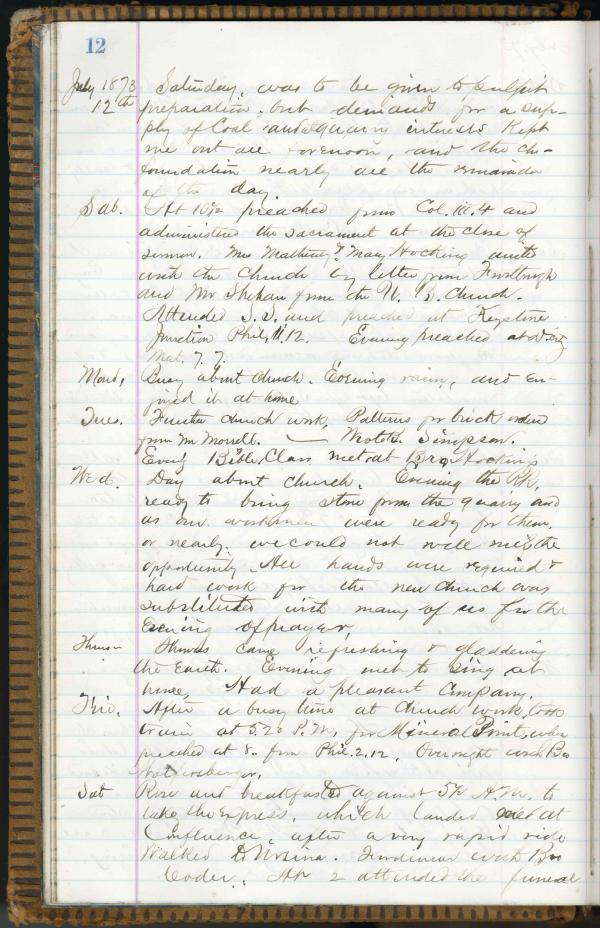 12
July 1873 Saturday, was to be given to pulpit
12th preparation, but demands for a sup-
ply of Coal and quarry interests Kept
me out all forenoon, and the ch-
foundation nearly all the remainder
of the day.
Sab. At 10½ preached from Col. III. 4 and
administered the sacrament at the close of
sermon. Mrs & Mary Hocking united
with the church by letter from
and Mr from the U. B. Church.
Attended S. S. and preached at Keystone
Junction Phil. III. 12. Evening preached at
Mat. 7. 7.
Mond, Busy about church. Evening rain, and en-
joyed it at home
Tues. Further church work. Patterns for brick
from Mr Morrell. — Simpson.
Even'g Bible Class met at Bro. Hocking's
Wed. Day about church. Evening the RR,
ready to bring stone from the quarry and
as our workmen were ready for them,
or nearly, we could not well miss the
opportunity. All hands were required &
hard work for the new church was
substituted with many of us for the
Evening of prayer,
Thurs- came refreshing & gladdening
the Earth. Evening met to sing at
home, Had a pleasant Company.
After a busy time at church work, took
train at 5.20 P.M, for Mineral Point, where
preached at 8.. from Phil. 2, 12, Overnight with Bro

Sat Rose and breakfasted against 5½ A.M. to
take the Express, which landed me at
Confluence, after a very rapid ride
Walked to Ursina. with Bro
At 2 attended the funeral